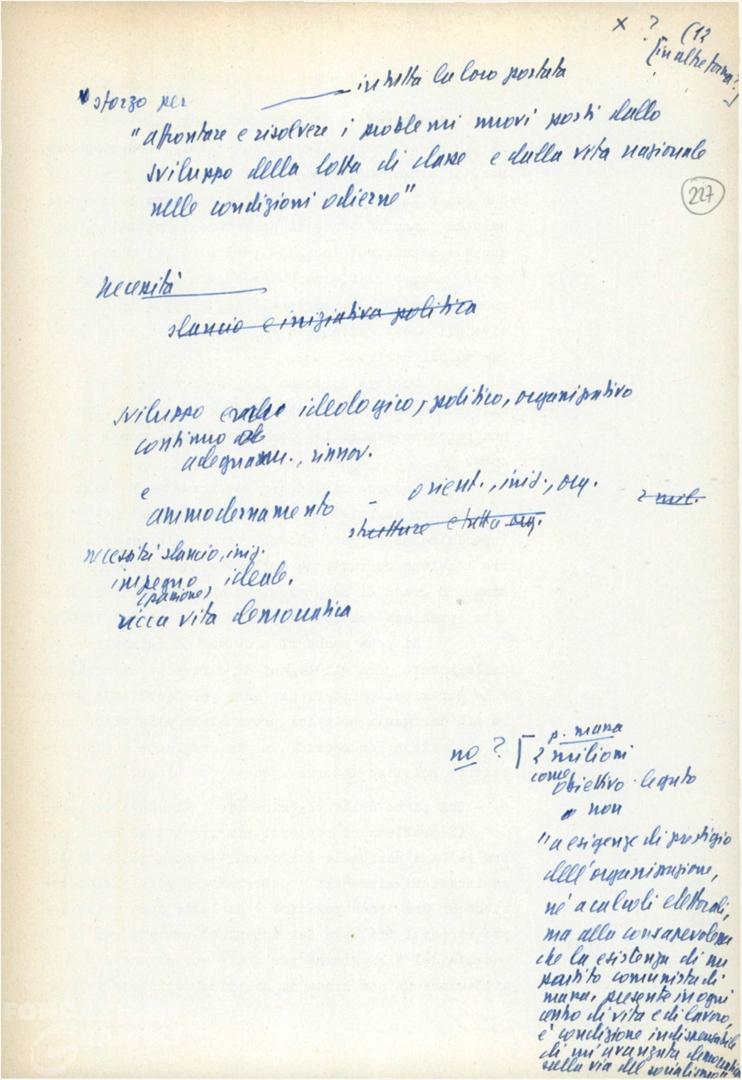 x ? (12
[in altra forma?]
sforzo per ——— in tutta la loro portata
"affrontare e risolvere i problemi nuovi posti dallo
sviluppo della lotta di classe e dalla vita nazionale
nelle condizioni odierne"
227
necessità
slancio e iniziativa politica
sviluppo anche ideologico, politico, organizzativo
continuo
adeguam., rinnov.
e
ammodernamento - orient., iniz., org.
strutture e tutta org.
necessità slancio, iniz.
impegno ideale.
(passione)
ricca vita democratica
no ? [ p. massa
2 milioni
come
obiettivo legato
non
"a esigenze di prestigio
dell'organizzazione,
né a calcoli elettorali,
ma alla consapevolezza
che la esistenza di un
partito comunista di
massa, presente in ogni
centro di vita e di lavoro,
è condizione indispensabile
di un'avanzata democratica
sulla via del socialismo"
FON